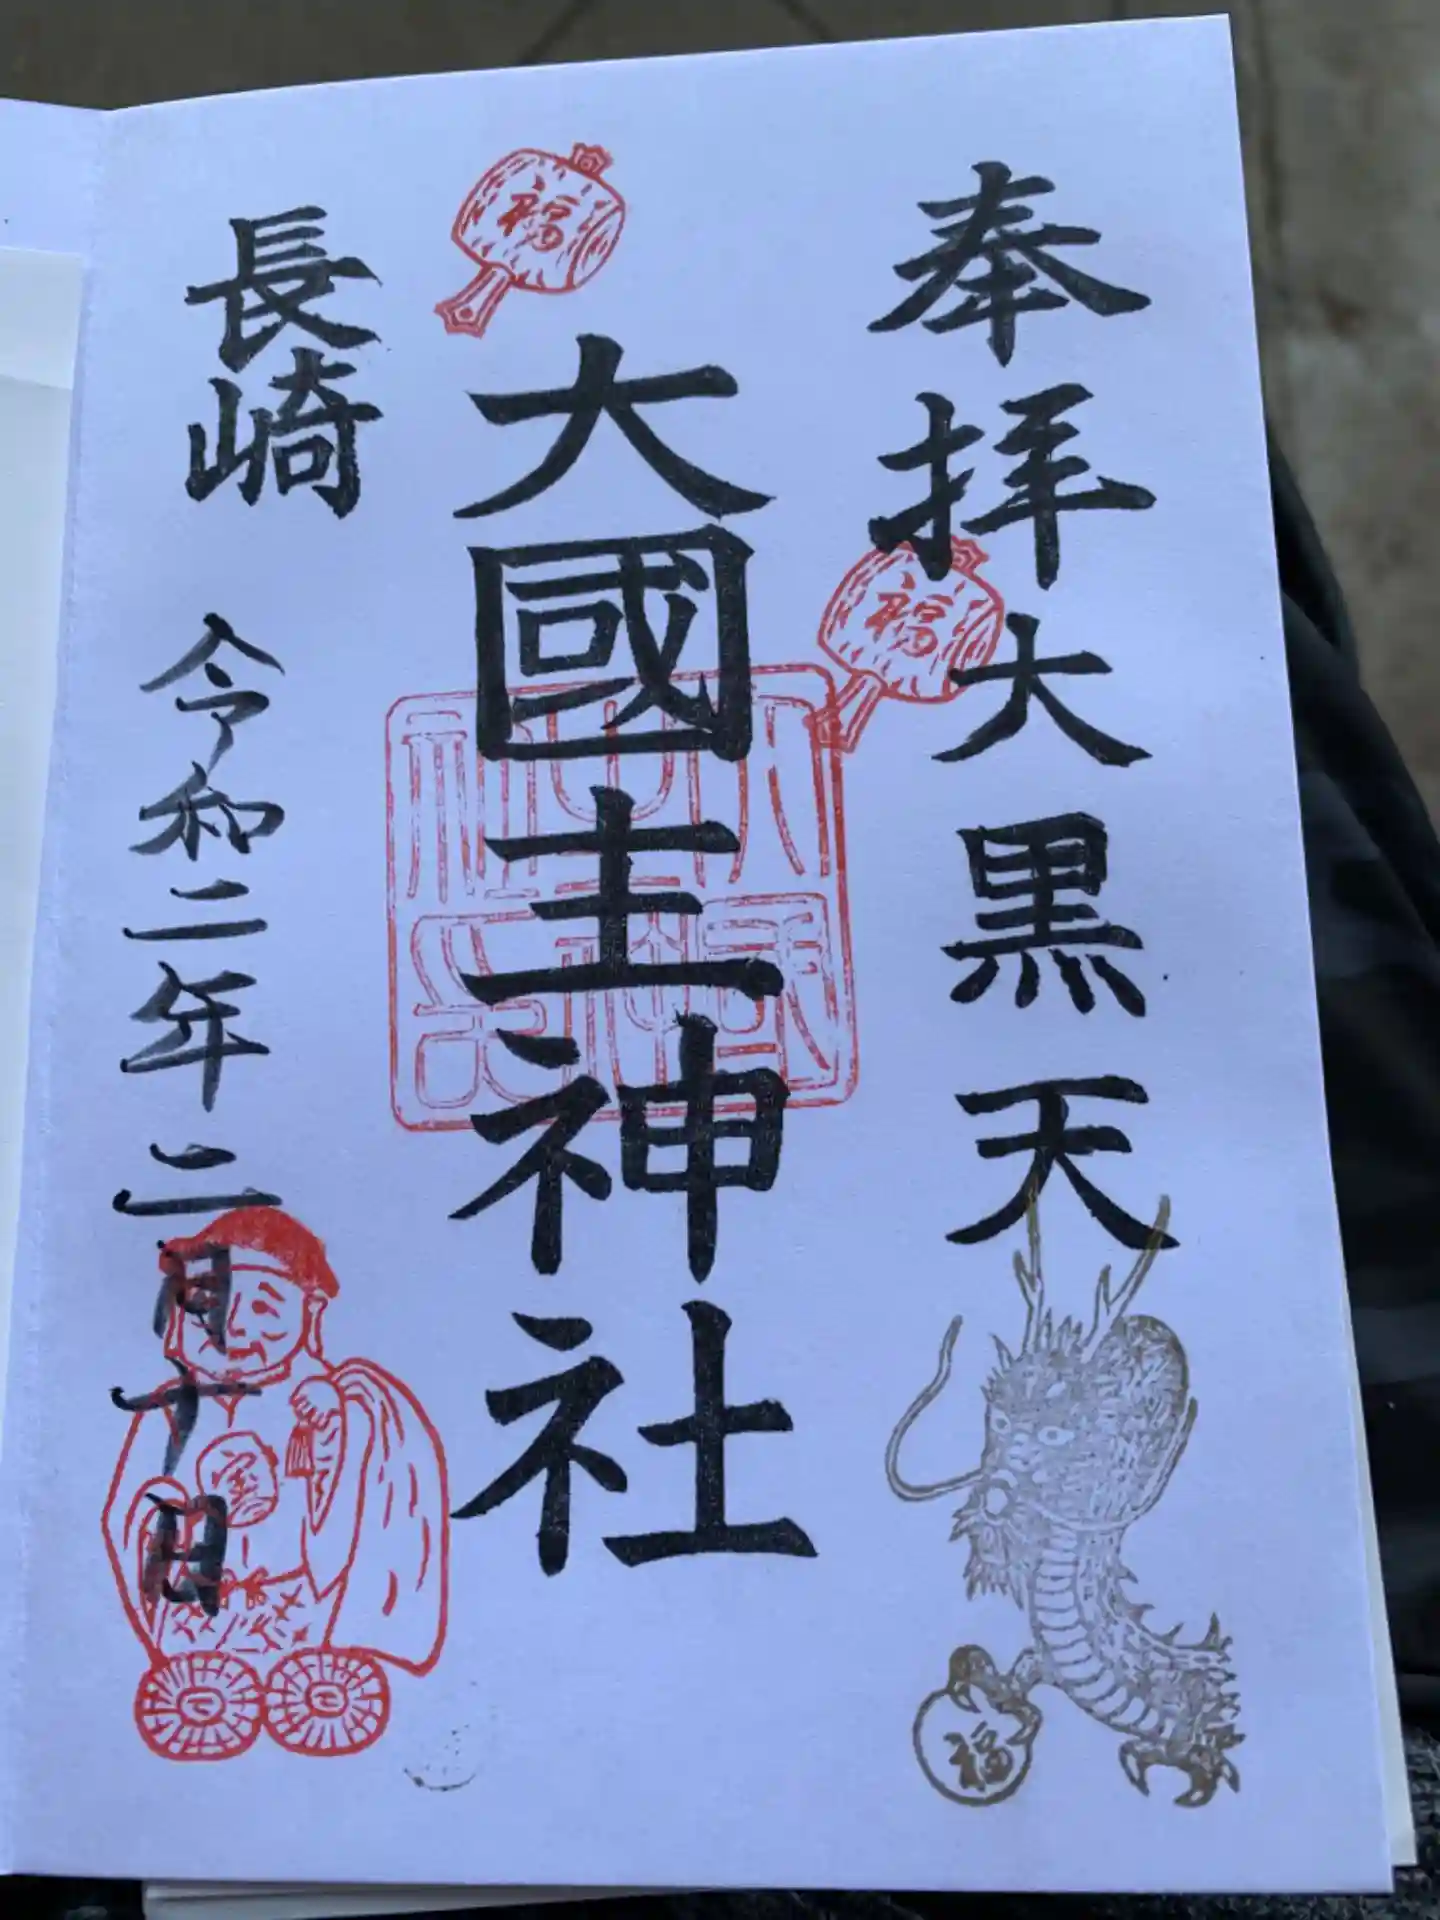 奉拝 大黒天
福
大國主神社
福
長崎
令和二年二月十日
宝
福